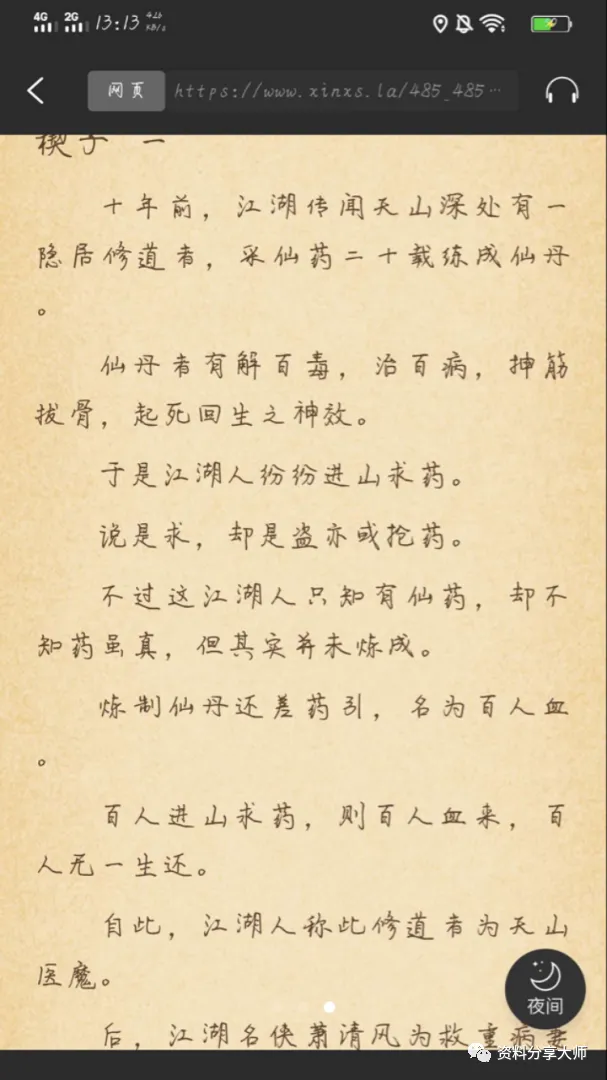 4G 2G 13:13
网页 https://www.xinxs.la/485_485…
楔子 一
十年前，江湖传闻天山深处有一
隐居修道者，采仙药二十载练成仙丹
。
仙丹者有解百毒，治百病，抻筋
拔骨，起死回生之神效。
于是江湖人纷纷进山求药。
说是求，却是盗亦或抢药。
不过这江湖人只知有仙药，却不
知药虽真，但其实并未炼成。
炼制仙丹还差药引，名为百人血
。
百人进山求药，则百人血来，百
人无一生还。
自此，江湖人称此修道者为天山
医魔。
后，江湖名侠萧清风为救重病妻
夜间
资料分享大师